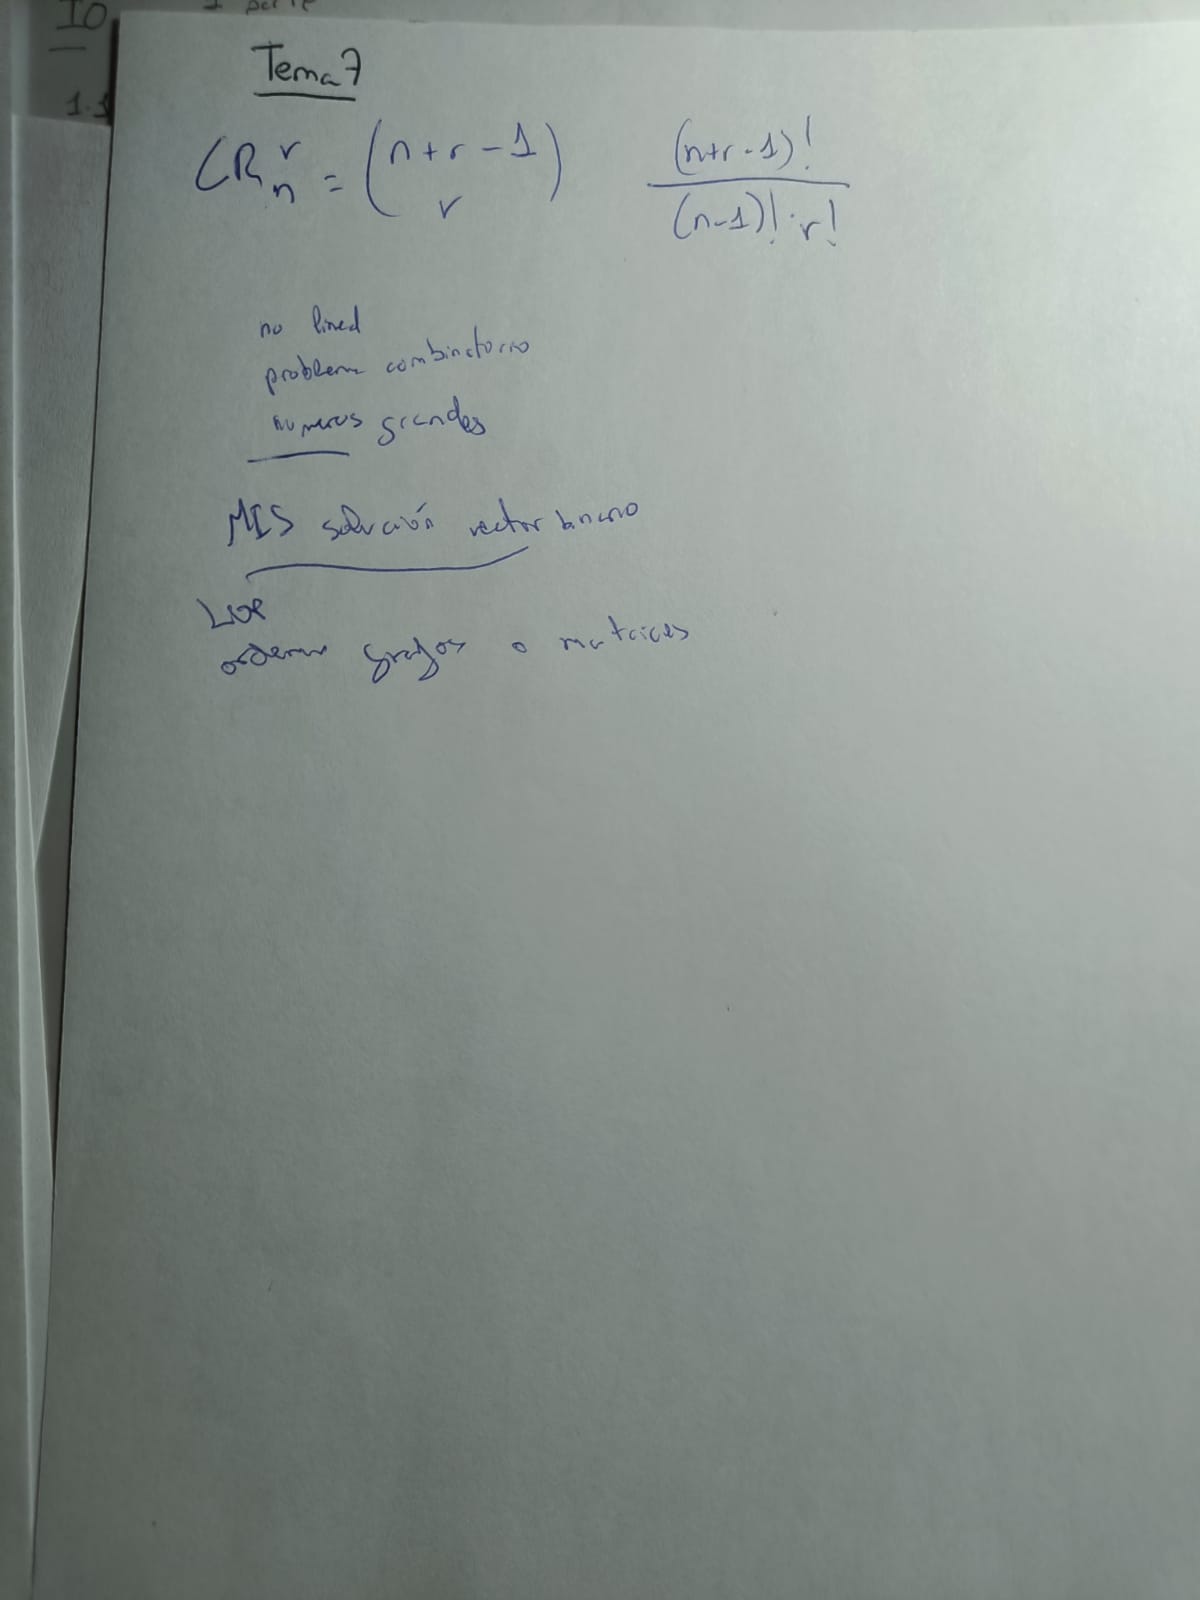 IO 1 parte
1.1
Tema 7
CR n r = (n+r-1 r) (n+r-1)! / (n-1)! · r!
no lineal
problema combinatorio
numeros grandes
MIS solución vector binario
LOP
ordenar grafos o matrices